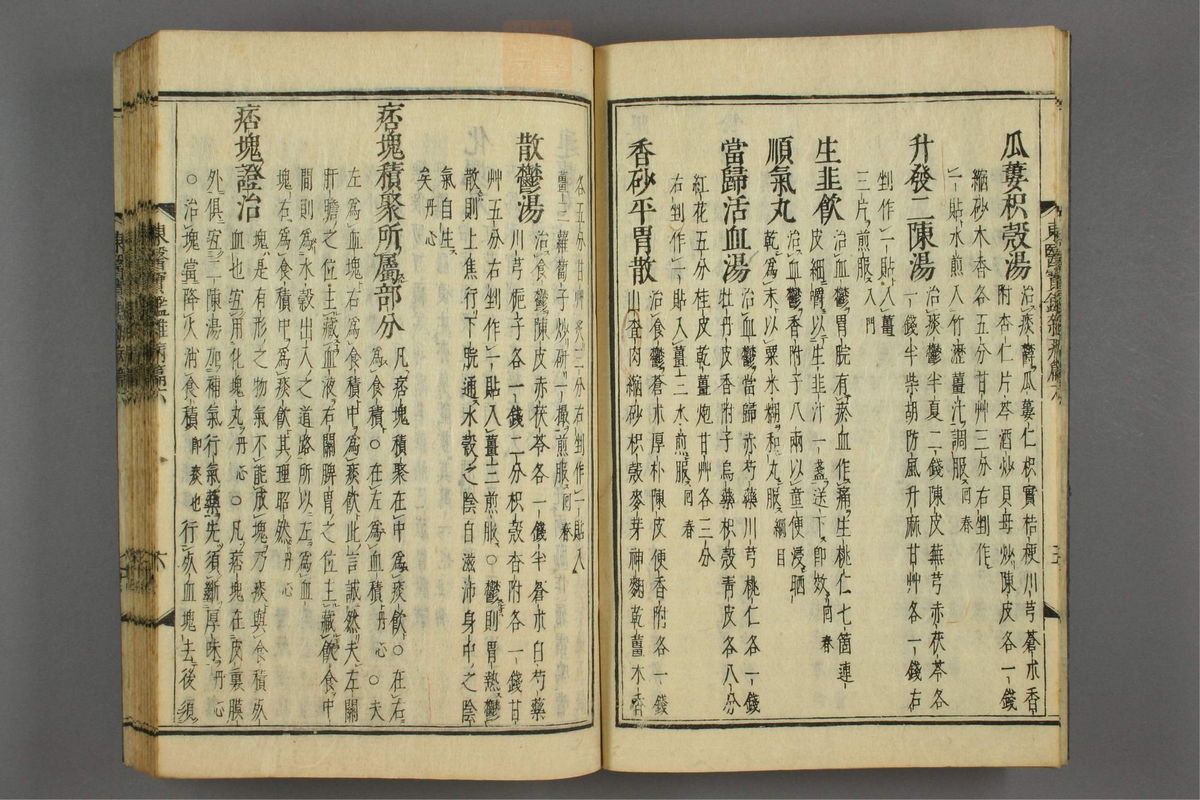 瓜蔞枳殼湯
治痰鬱瓜蔞仁枳實桔梗川芎蒼朮香
附杏仁片芩酒炒貝母炒陳皮各一錢
縮砂木香各五分甘艸三分右剉作
一貼水煎入竹瀝薑汁調服回春
升發二陳湯
治痰鬱半夏二錢陳皮蕪芎赤茯苓各
一錢半柴胡防風升麻甘艸各一錢右
剉作一貼入薑
三片煎服入門
生韭飮
治血鬱胃脘有瘀血作痛生桃仁七箇連
皮細嚼以生韭汁一盞送下卽效回春
順氣丸
治血鬱香附子八兩以童便浸晒
乾爲末以粟米糊和丸服綱目
當歸活血湯
治血鬱當歸赤芍藥川芎桃仁各一錢
牡丹皮香附子烏藥枳殼靑皮各八分
紅花五分桂皮乾薑炮甘艸各三分
右剉作一貼入薑三水煎服回春
香砂平胃散
治食鬱蒼朮厚朴陳皮便香附各一錢
山査肉縮砂枳殼麥芽神麴乾薑木香
東醫寶鑑雜病篇六
各五分甘艸炙三分右剉作一貼入
薑三蘿葍子炒硏一撮煎服回春
散鬱湯
治食鬱陳皮赤茯苓各一錢半蒼朮白芍藥
川芎梔子各一錢二分枳殼香附各一錢甘
艸五分右剉作一貼入薑三煎服○鬱則胃熱鬱
散則上焦行下脘通水穀之陰自滋沛身中之陰
氣自生
矣丹心
痞塊積聚所屬部分
凡痞塊積聚在中爲痰飮○在右
爲食積○在左爲血積丹心○夫
左爲血塊右爲食積中爲痰飮此言誠然夫左關
肝膽之位主藏血液右關脾胃之位主藏飮食中
間則爲水穀出入之道路所以左爲血
塊右爲食積中爲痰飮其理昭然丹心
痞塊證治
塊是有形之物氣不能成塊乃痰與食積死
血也宜用化塊丸丹心○凡痞塊在皮裏膜
外俱宜二陳湯加補氣行氣藥先須斷厚味丹心
○治塊當降火消食積卽痰也行死血塊去後須
東醫寶鑑雜病篇六
六